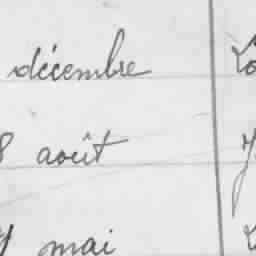 décembre
8 août
mai